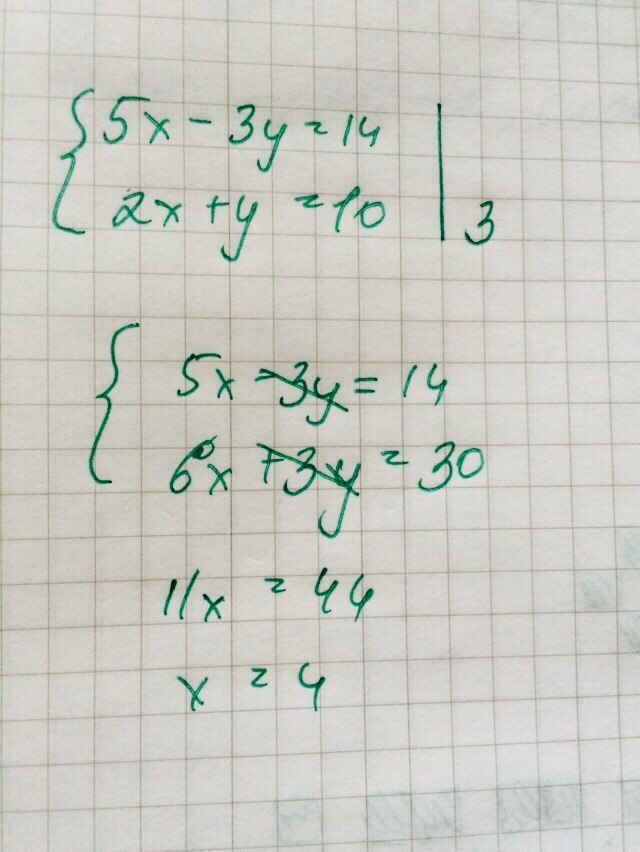 5x - 3y = 14
2x + y = 10 | 3
5x - 3y = 14
6x + 3y = 30
11x = 44
x = 4